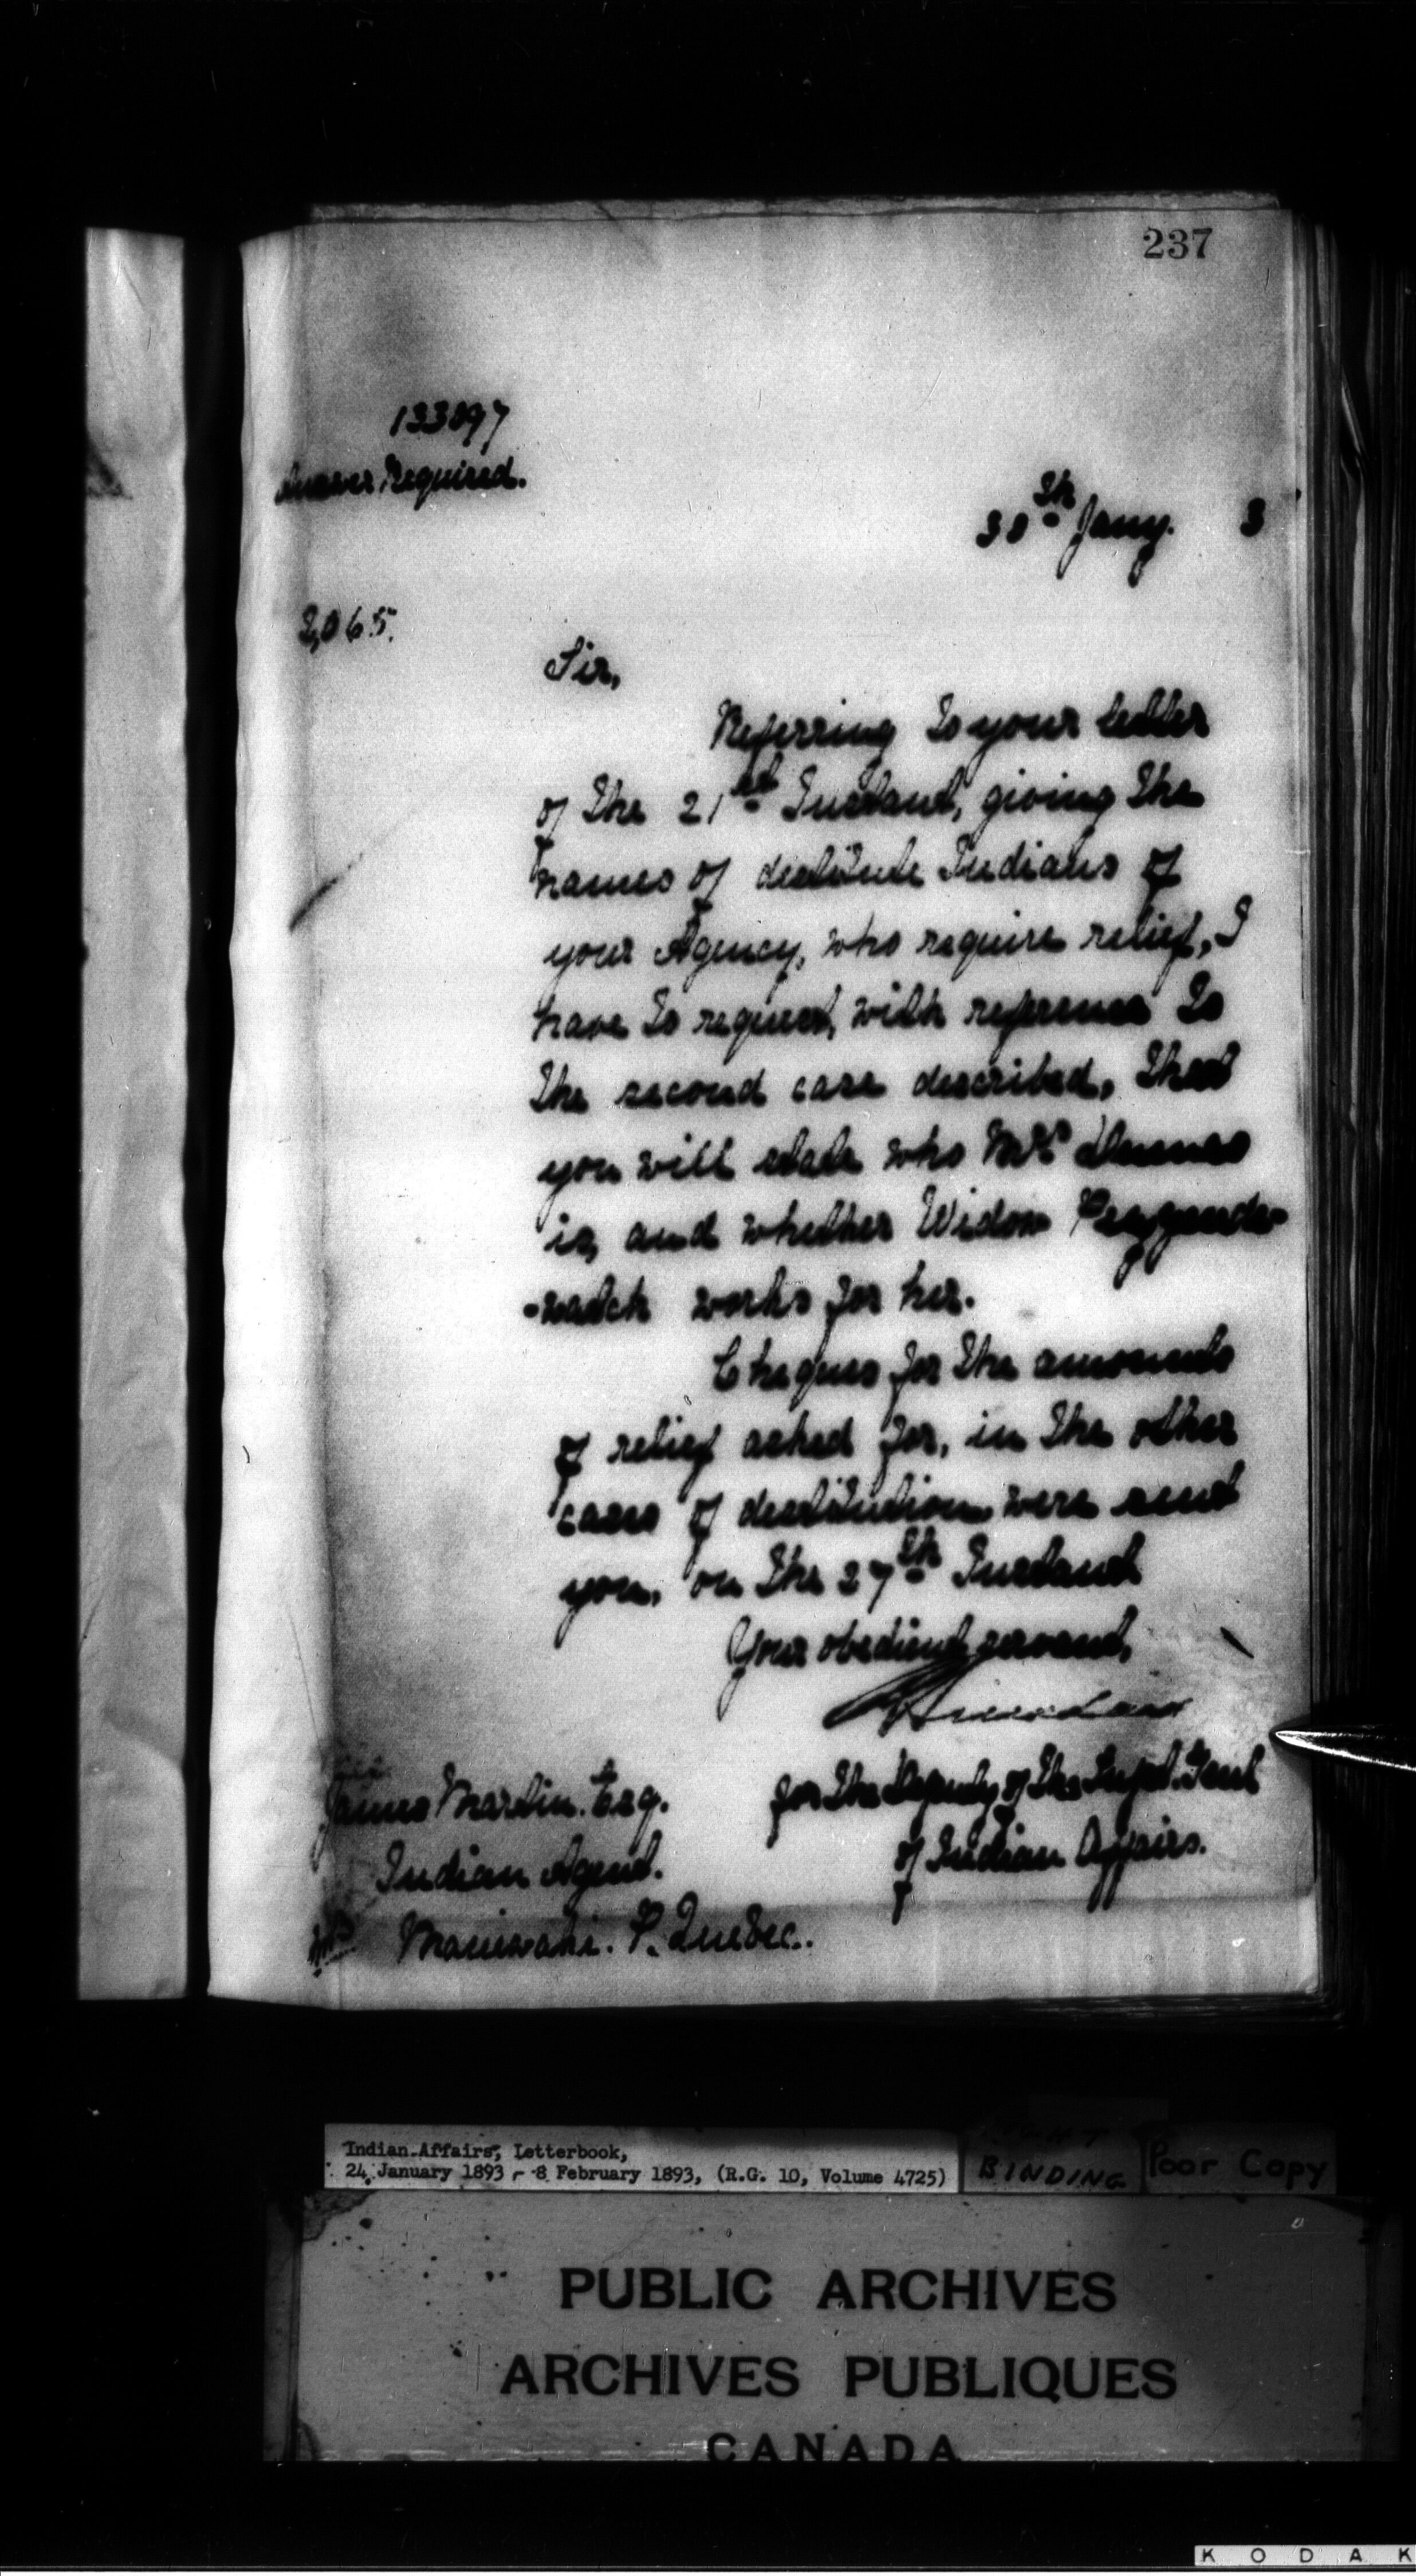 237
133897
Answer Required.
30th Jany. 3
2,065.
Sir,
Referring to your letter
of the 21st Instant, giving the
names of destitute Indians of
your Agency, who require relief, I
have to request, with reference to
the second case described, that
you will state who Mrs
is, and whether Widow
works for her.
Cheques for the amounts
of relief asked for, in the other
cases of destitution were sent
you, on the 27th Instant
Your obedient servant,
for the Deputy of the Supt. Genl
of Indian Affairs.
James Martin. Esq.
Indian Agent.
Maniwaki. P. Quebec.
Indian Affairs, Letterbook,
24 January 1893 - 8 February 1893, (R.G. 10, Volume 4725)
BINDING
Poor Copy
PUBLIC ARCHIVES
ARCHIVES PUBLIQUES
CANADA
KODAK